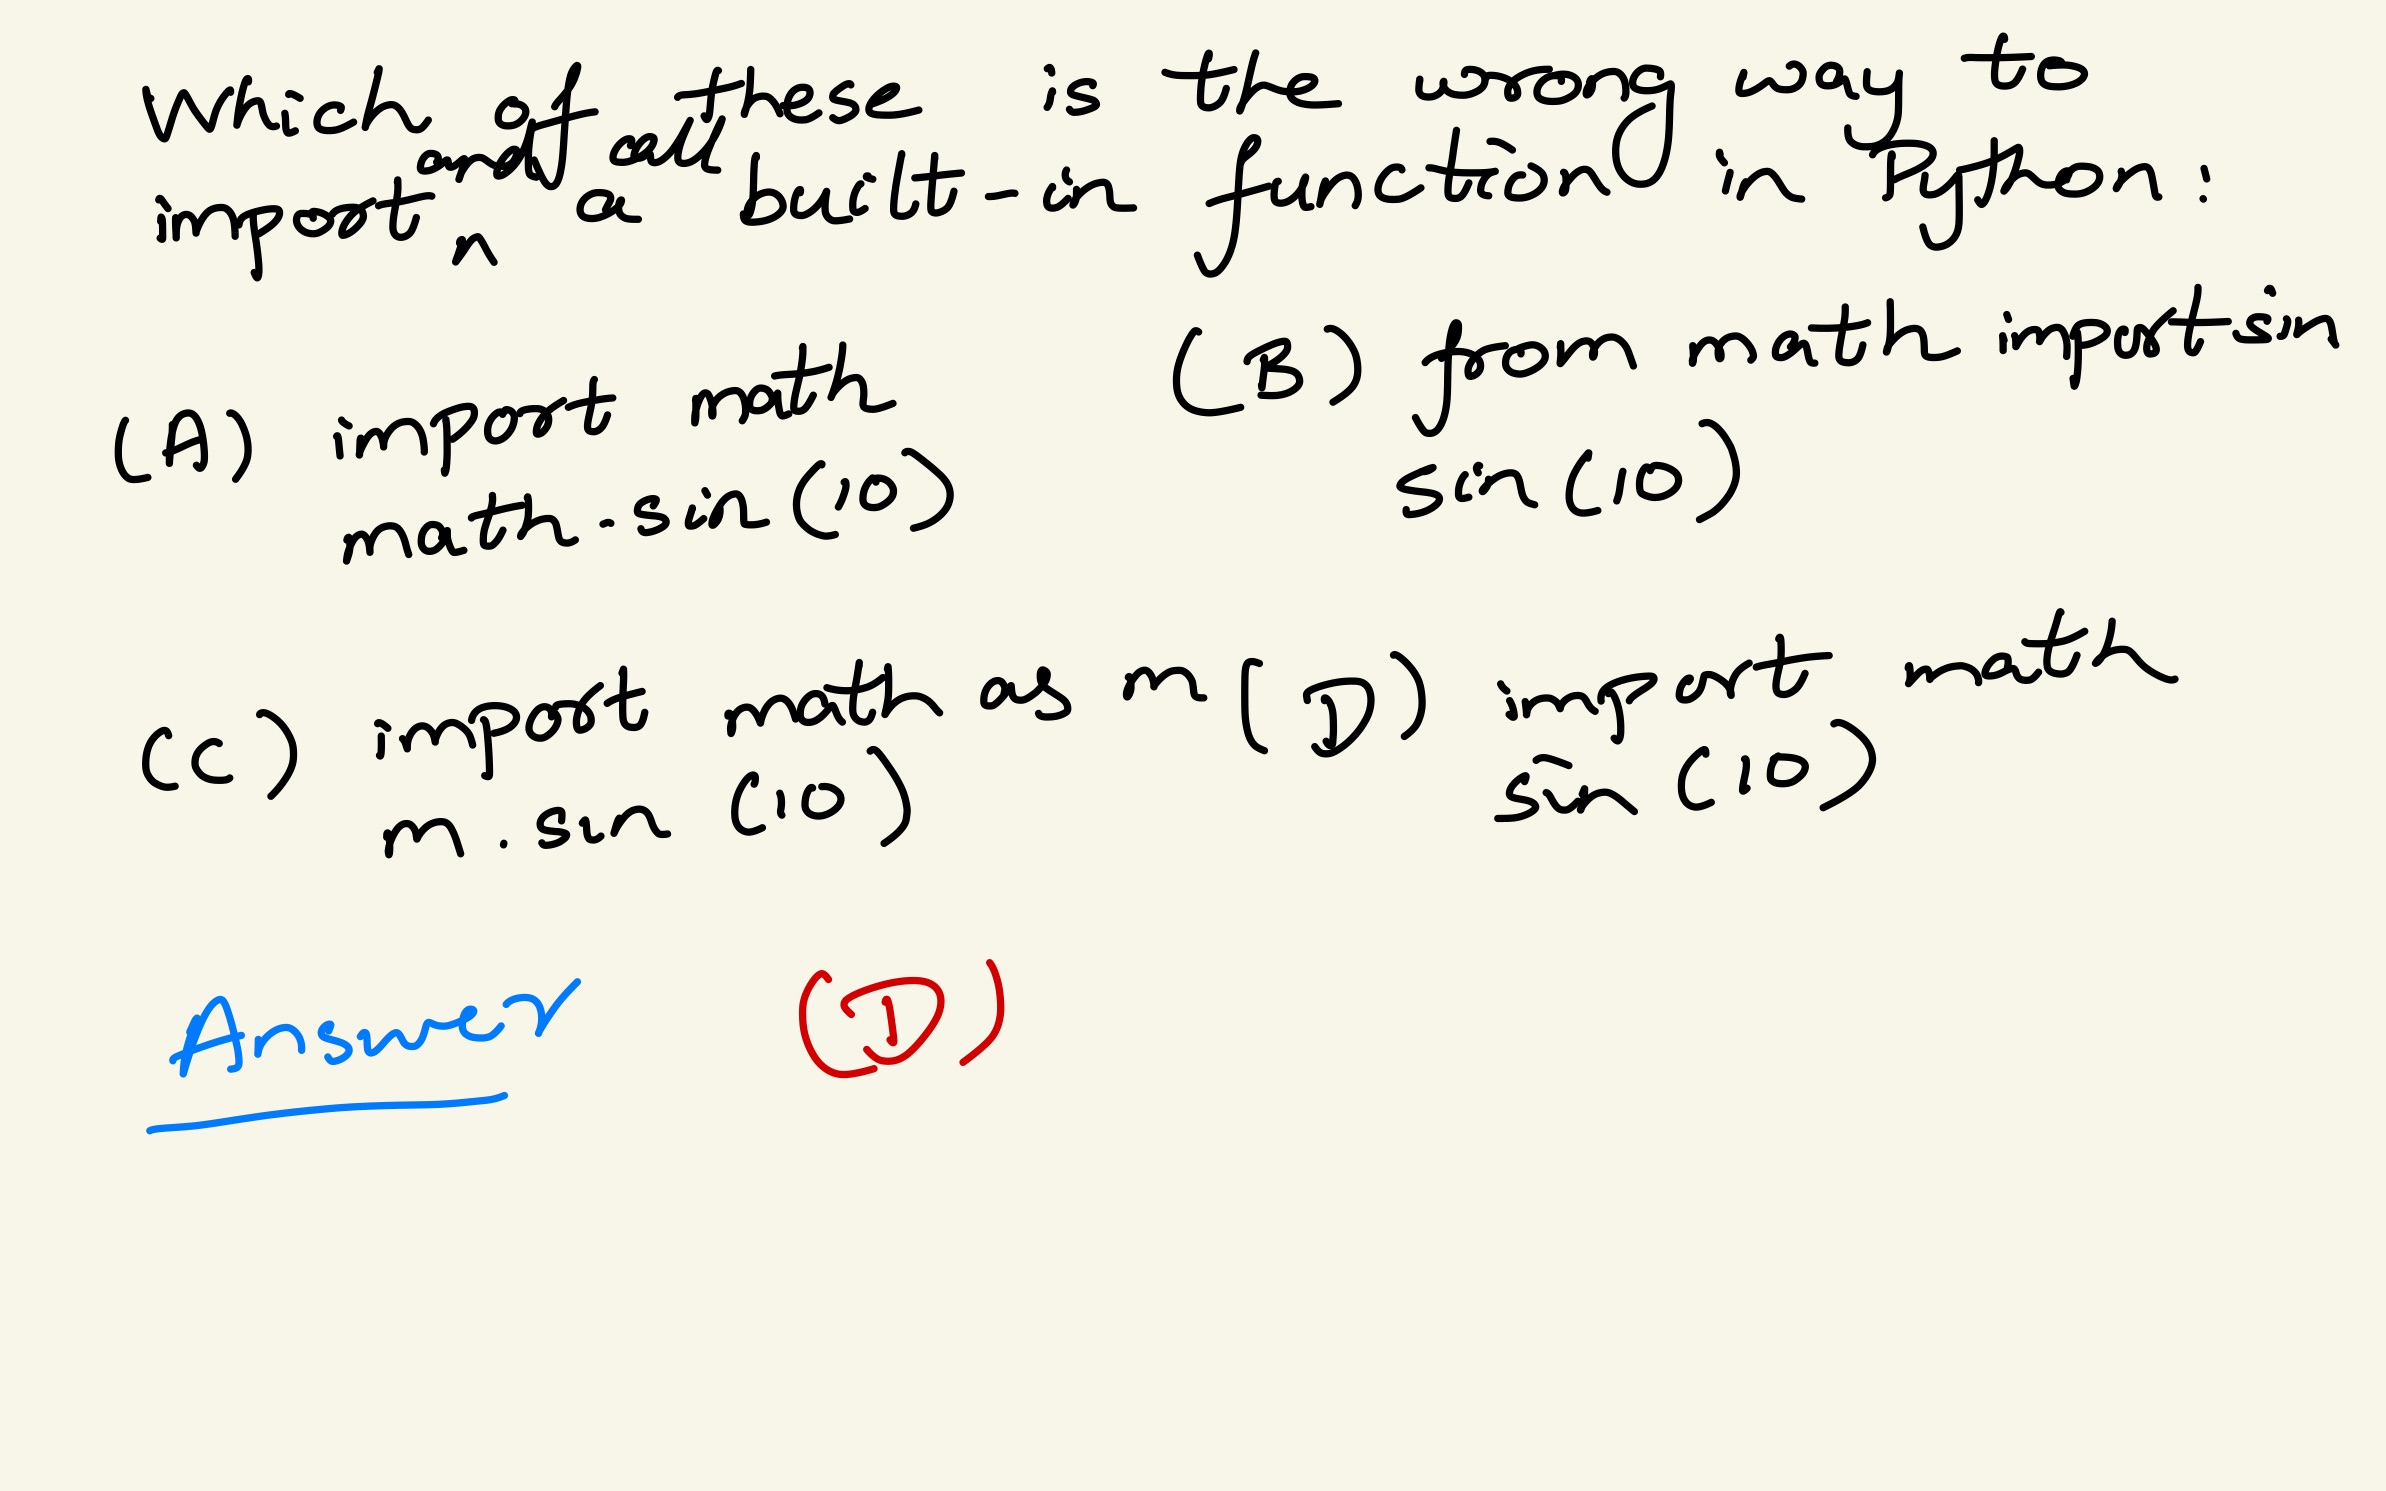 Which of these is the wrong way to
import and call a built-in function in Python:
(A) import math
math.sin(10)
(B) from math import sin
sin(10)
(C) import math as m
m.sin(10)
(D) import math
sin(10)
Answer (D)